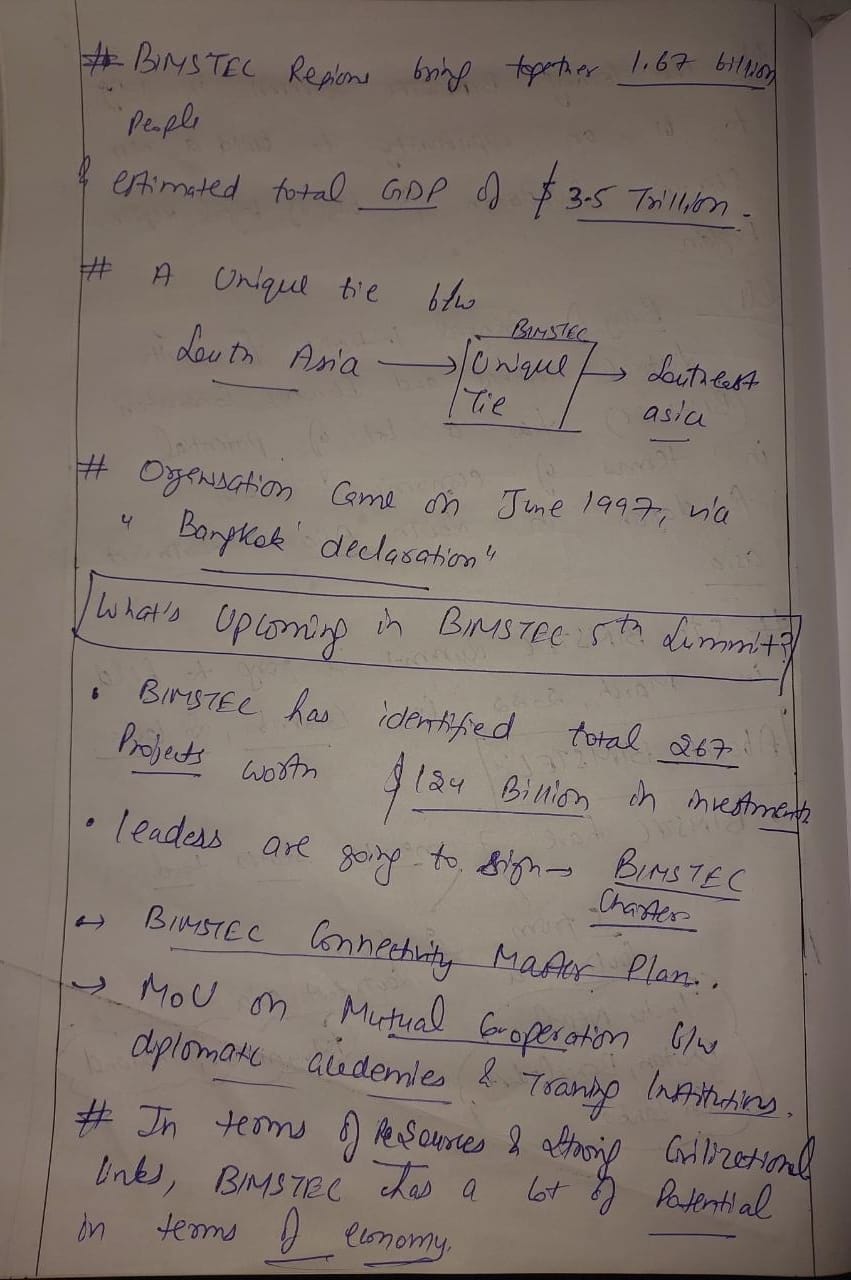 # BIMSTEC Regions bring together 1.67 billion
People
& estimated total GDP of $ 3.5 Trillion.
# A Unique tie b/w
BIMSTEC
South Asia → Unique → Southeast
Tie asia
# Orgensation Came on June 1997, via
"Bangkok declaration"
What's Upcoming in BIMSTEC 5th Summit?
• BIMSTEC has identified total 267
Projects worth $ 124 Billion in investments
• leaders are going to sign → BIMSTEC
Charter
↔ BIMSTEC Connectivity Master Plan..
→ MoU on Mutual Cooperation b/w
diplomatic academies & Traning Institutions.
# In terms of Resources & Strong Civilizational
links, BIMSTEC has a lot of Potential
in terms of economy.